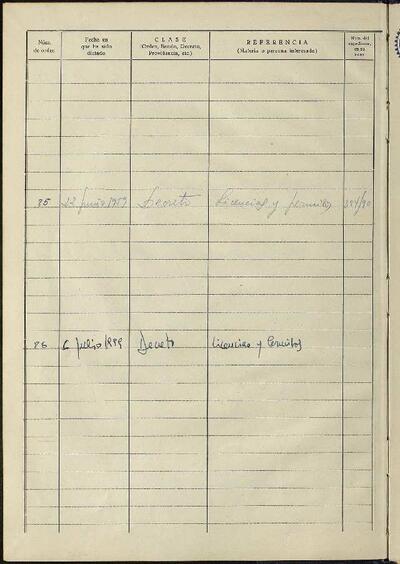 Núm. de orden
Fecha en que ha sido dictado
CLASE
(Orden, Bando, Decreto, Providencia, etc.)
REFERENCIA
(Materia o persona interesada)
Núm. del expediente, en su caso
85 Decreto Licencias y permisos
86 6 Julio 1989 Decreto Licencias y Permisos